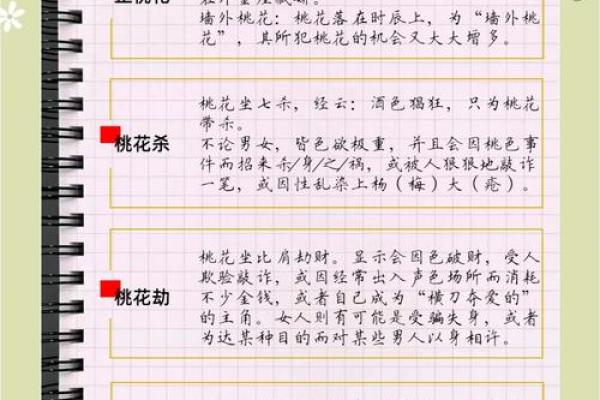 墙外桃花：桃花落在时辰上，为“墙外桃
花”，其所犯桃花的机会又大大增多。
桃花杀
桃花坐七杀，经云：酒色猖狂，只为桃花
带杀。
不论男女，皆色欲极重，并且会因桃色事
件而招来杀/身/之/祸，或被人狠狠地敲诈
一笔，或因性乱染上杨（梅）大（疮）。
桃花劫
桃花坐比肩劫财。显示会因色破财，受人
欺验敲诈，或因经常出入声色场所而消耗
不少金钱，或者自己成为“横刀夺爱的”
的主角。女人则有可能是受骗失身，或者
为达某种目的而对某些男人以身相许。